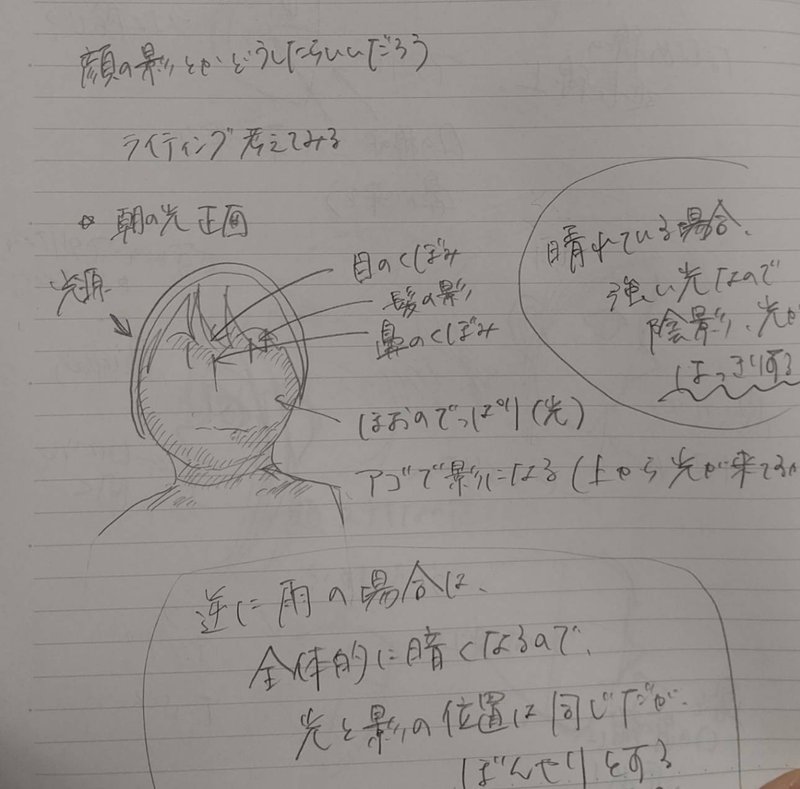 顔の影とかどうしたらいいだろう
ライティング考えてみる
☆ 朝の光 正面
光源
目のくぼみ
髪の影
鼻のくぼみ
ほおのでっぱり(光)
アゴで影になる(上から光が来てるか
晴れている場合、
強い光なので
陰影、光が
はっきりする
逆に雨の場合は、
全体的に暗くなるので、
光と影の位置は同じだが、
ぼんやりとする